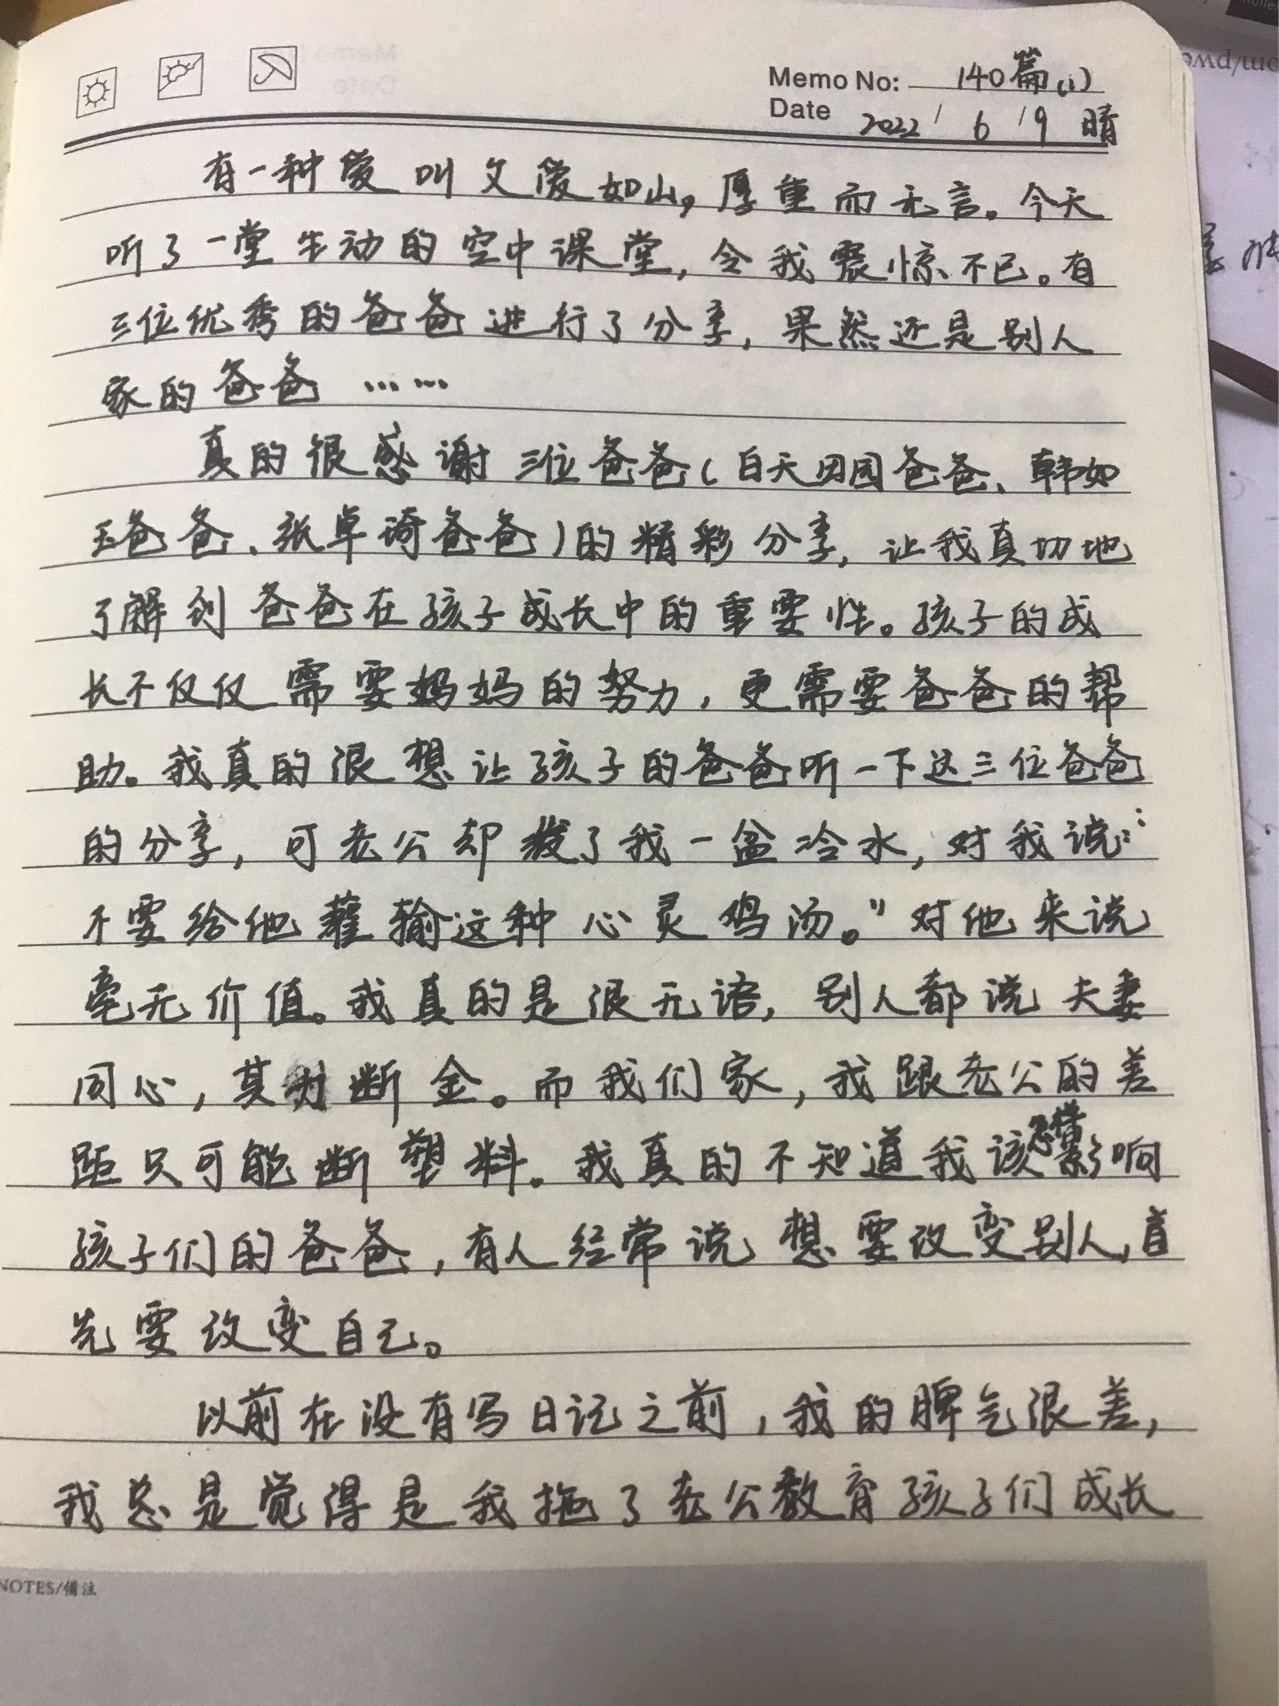 Memo No: 140篇(1)
Date 2022/6/9 晴
有一种爱叫父爱如山，厚重而无言。今天
听了一堂生动的空中课堂，令我震惊不已。有
三位优秀的爸爸进行了分享，果然还是别人
家的爸爸……
真的很感谢三位爸爸（白天因园爸爸、韩如
玉爸爸、张卓琦爸爸）的精彩分享，让我真切地
了解到爸爸在孩子成长中的重要性。孩子的成
长不仅仅需要妈妈的努力，更需要爸爸的帮
助。我真的很想让孩子的爸爸听一下这三位爸爸
的分享，可老公却拨了我一盆冷水，对我说：“
不要给他灌输这种心灵鸡汤。”对他来说
毫无价值。我真的是很无语，别人都说夫妻
同心，其力断金。而我们家，我跟老公的差
距只可能断塑料。我真的不知道我该怎样影响
孩子们的爸爸，有人经常说想要改变别人，首
先要改变自己。
以前在没有写日记之前，我的脾气很差，
我总是觉得是我拖了老公教育孩子们成长
NOTES/備注